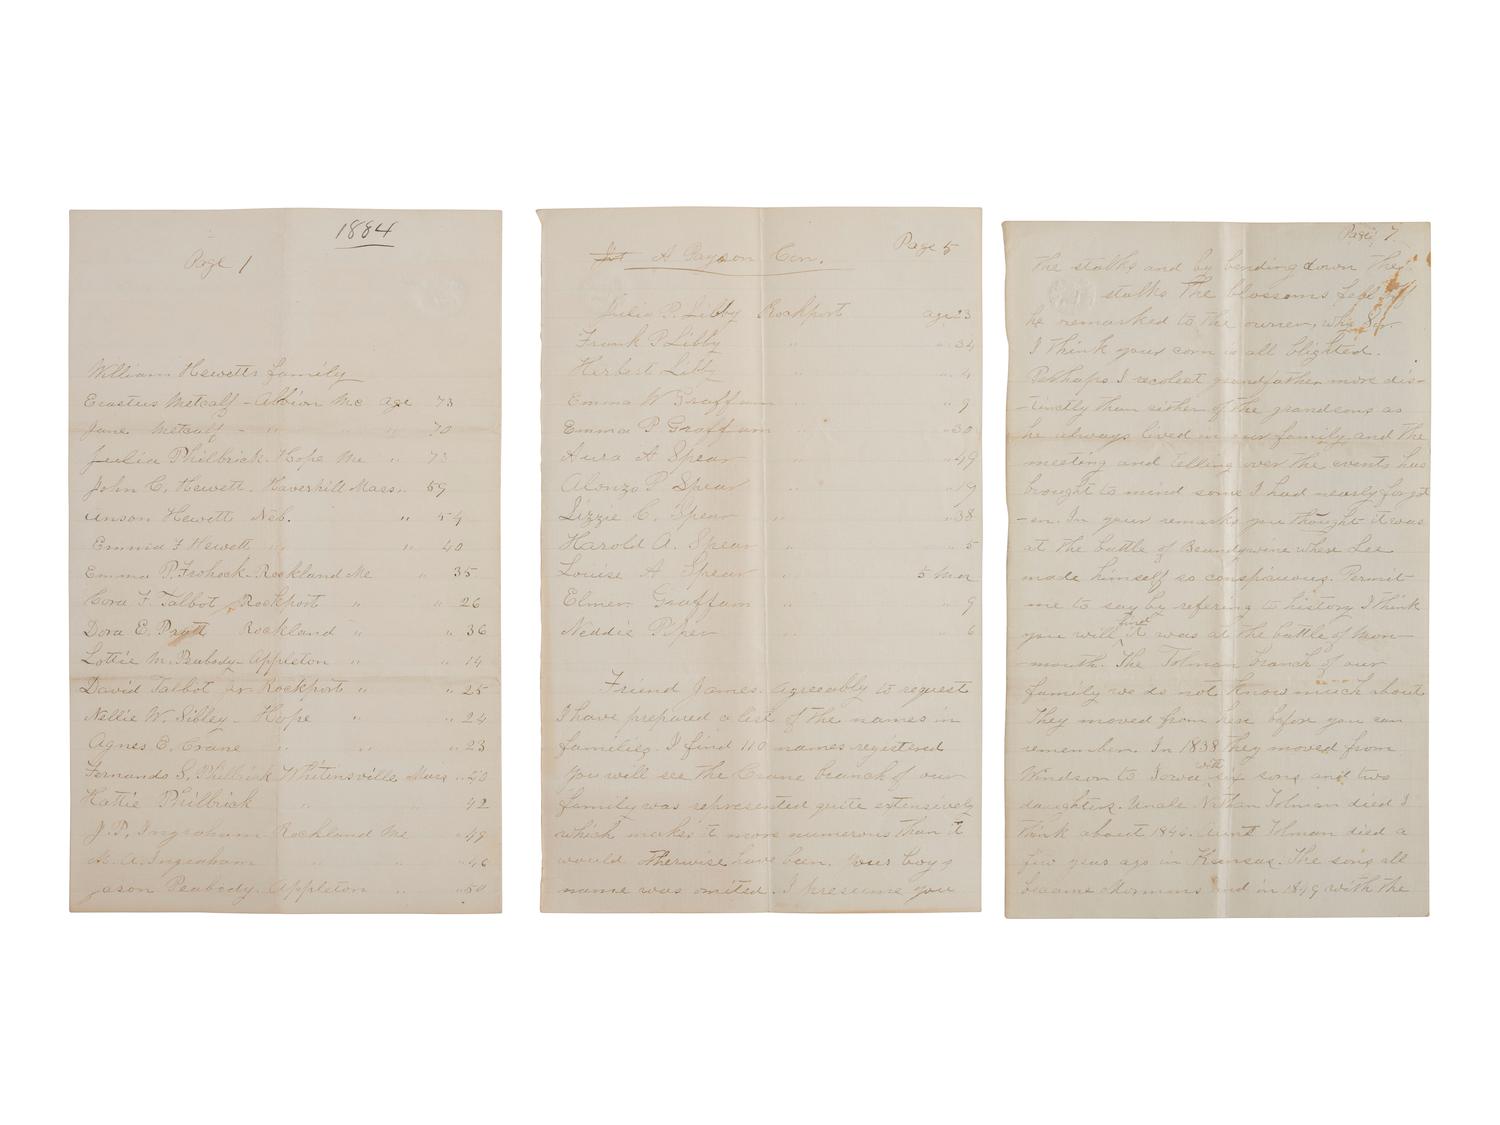 1884
Page 1
William Hewetts family
Erastus Metcalf - Albion Me age 73
Jane Metcalf - " " " 70
Julia Philbrick. Hope Me " 73
John C. Hewett. Haverhill Mass. " 59
Anson Hewett Neb. " 54
Emma F Hewett " " 40
Emma P. Frohock - Rockland Me " 35
Cora F. Talbot Rockport " " 26
Dora E. Pratt Rockland " " 36
Lottie M. Peabody - Appleton " " 14
David Talbot Jr Rockport " " 25
Nellie W. Sibley - Hope " " 24
Agnes E. Crane " " " 23
Fernando S. Philbrick Whitensville Mass " 40
Hattie Philbrick " " 42
J. P. Ingraham Rockland Me " 49
A. Ingraham " " " 46
Jason Peabody. Appleton " " 50
Page 5
A Payson Con.
Julia P. Libby Rockport age 23
Frank P Libby " " 34
Herbert Libby " " 4
Emma W Graffam " 9
Emma P Graffam " 30
Aura A Spear " 49
Alonzo P Spear " " 19
Lizzie C. Spear " " 38
Harold A. Spear " " 5
Louise A Spear " 5 Mos
Elmer Graffam " " 9
Neddie Piper " " 6
Friend James. Agreeably to request
I have prepared a list of the names in
families. I find 110 names registered
You will see the Crane branch of our
family was represented quite extensively
which makes it more numerous than it
would otherwise have been. Your boys
name was omited. I presume you
Page 7
the stalks and by bending down the
stalks the blossoms fell off
he remarked to the owner, why Sir
I think your corn is all blighted.
Perhaps I recolect grandfather more dis-
-tinctly than either of the grandsons as
he always lived in our family and the
meeting and telling over the events has
brought to mind some I had nearly forgot
-en. In your remarks you thought it was
at the battle of Brandywine where Lee
made himself so conspicuous. Permit
me to say by refering to history I think
you will find it was at the battle of Mon-
-mouth. The Tolman branch of our
family we do not know much about
They moved from here before you can
remember. In 1838 they moved from
Windsor to Iowa with six sons and two
daughters. Uncle Nathan Tolman died I
think about 1846. Aunt Tolman died a
few years ago in Kansas. The sons all
became Mormons and in 1849 with the